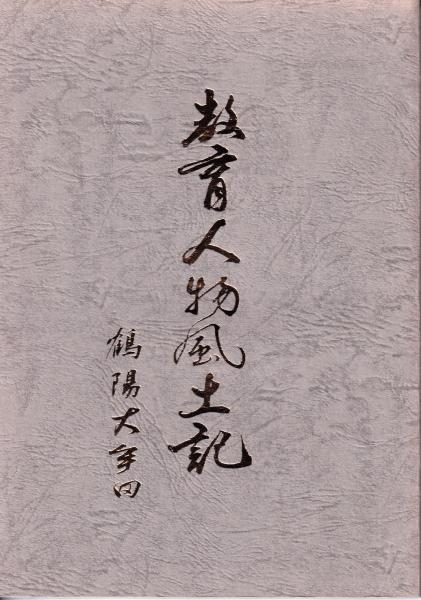 教育人物風土記
鶴陽大